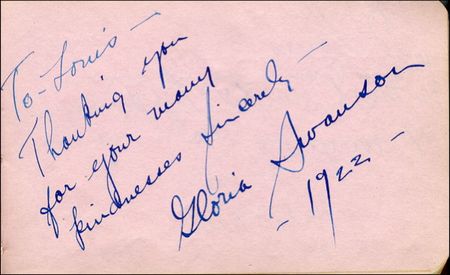 To - Louis -
Thanking you
for your many
kindnesses Sincerely -
Gloria Swanson
- 1922 -